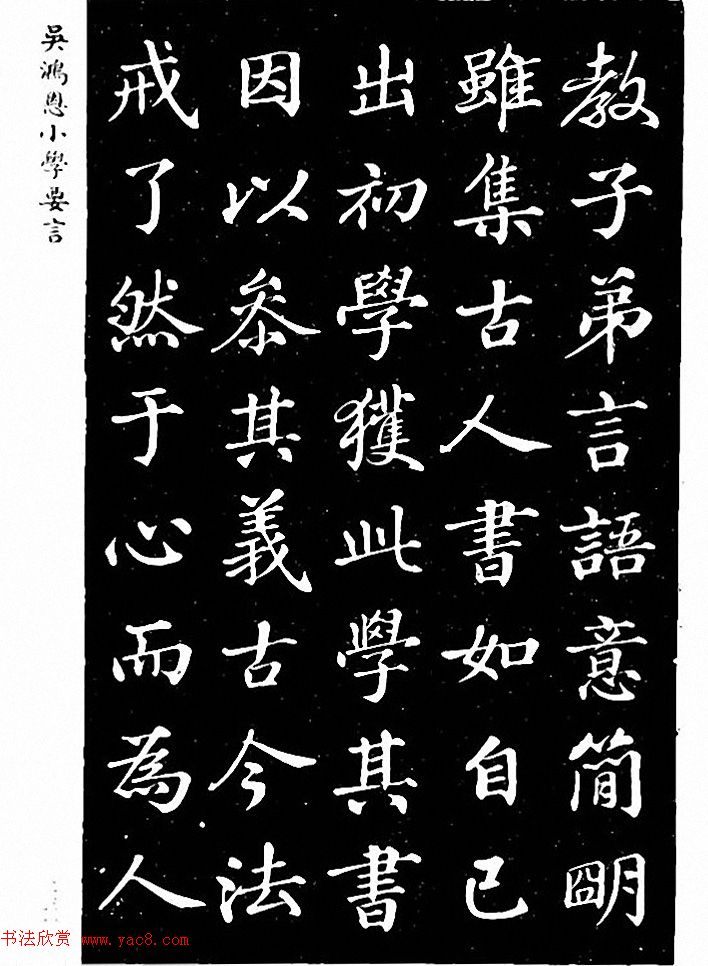 教子弟言語意簡朙
雖集古人書如自已
出初學獲此學其書
因以叅其義古今法
戒了然于心而為人
吳鴻恩小學要言
书法欣赏 www.yac8.com